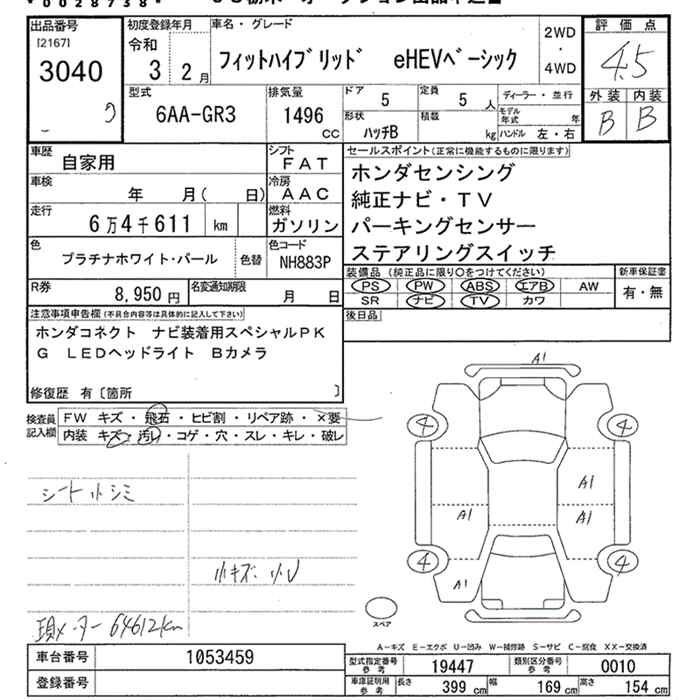 *0028738*
出品番号 [2167] 3040
初度登録年月 令和 3 2月
車名・グレード フィットハイブリッド eHEVベーシック
2WD・4WD
評価点 4.5
外装 B 内装 B
型式 6AA-GR3
排気量 1496 CC
ドア 5 定員 5 人
形状 ハッチB 積載 kg
ディーラー・並行
モデル年式 年
ハンドル 左・右
車歴 自家用
シフト FAT
車検 年 月( 日)
冷房 AAC
走行 6万4千611 km
燃料 ガソリン
色 プラチナホワイト・パール 色替
色コード NH883P
R券 8,950円
名変通知期限 月 日
セールスポイント(正常に機能するものに限ります)
ホンダセンシング
純正ナビ・TV
パーキングセンサー
ステアリングスイッチ
装備品(純正品に限り○をつけてください)
PS PW ABS エアB AW
SR ナビ TV カワ
新車保証書 有・無
後日品
注意事項申告欄(不具合内容等は具体的に記入して下さい)
ホンダコネクト ナビ装着用スペシャルPK
G LEDヘッドライト Bカメラ
修復歴 有〔箇所 〕
検査員記入欄
FW キズ・飛石・ヒビ割・リペア跡・×要
内装 キズ・汚レ・コゲ・穴・スレ・キレ・破レ
シート小シミ
小キズ・小U
現メーター64612km
A1
4 4
A1
A1 A1
4 4
A1
スペア
A-キズ E-エクボ U-凹み W-補修跡 S-サビ C-腐食 XX-交換済
車台番号 1053459
登録番号
型式指定番号 参考 19447
類別区分番号 参考 0010
車庫証明用 参考 長さ 399 cm 幅 169 cm 高さ 154 cm